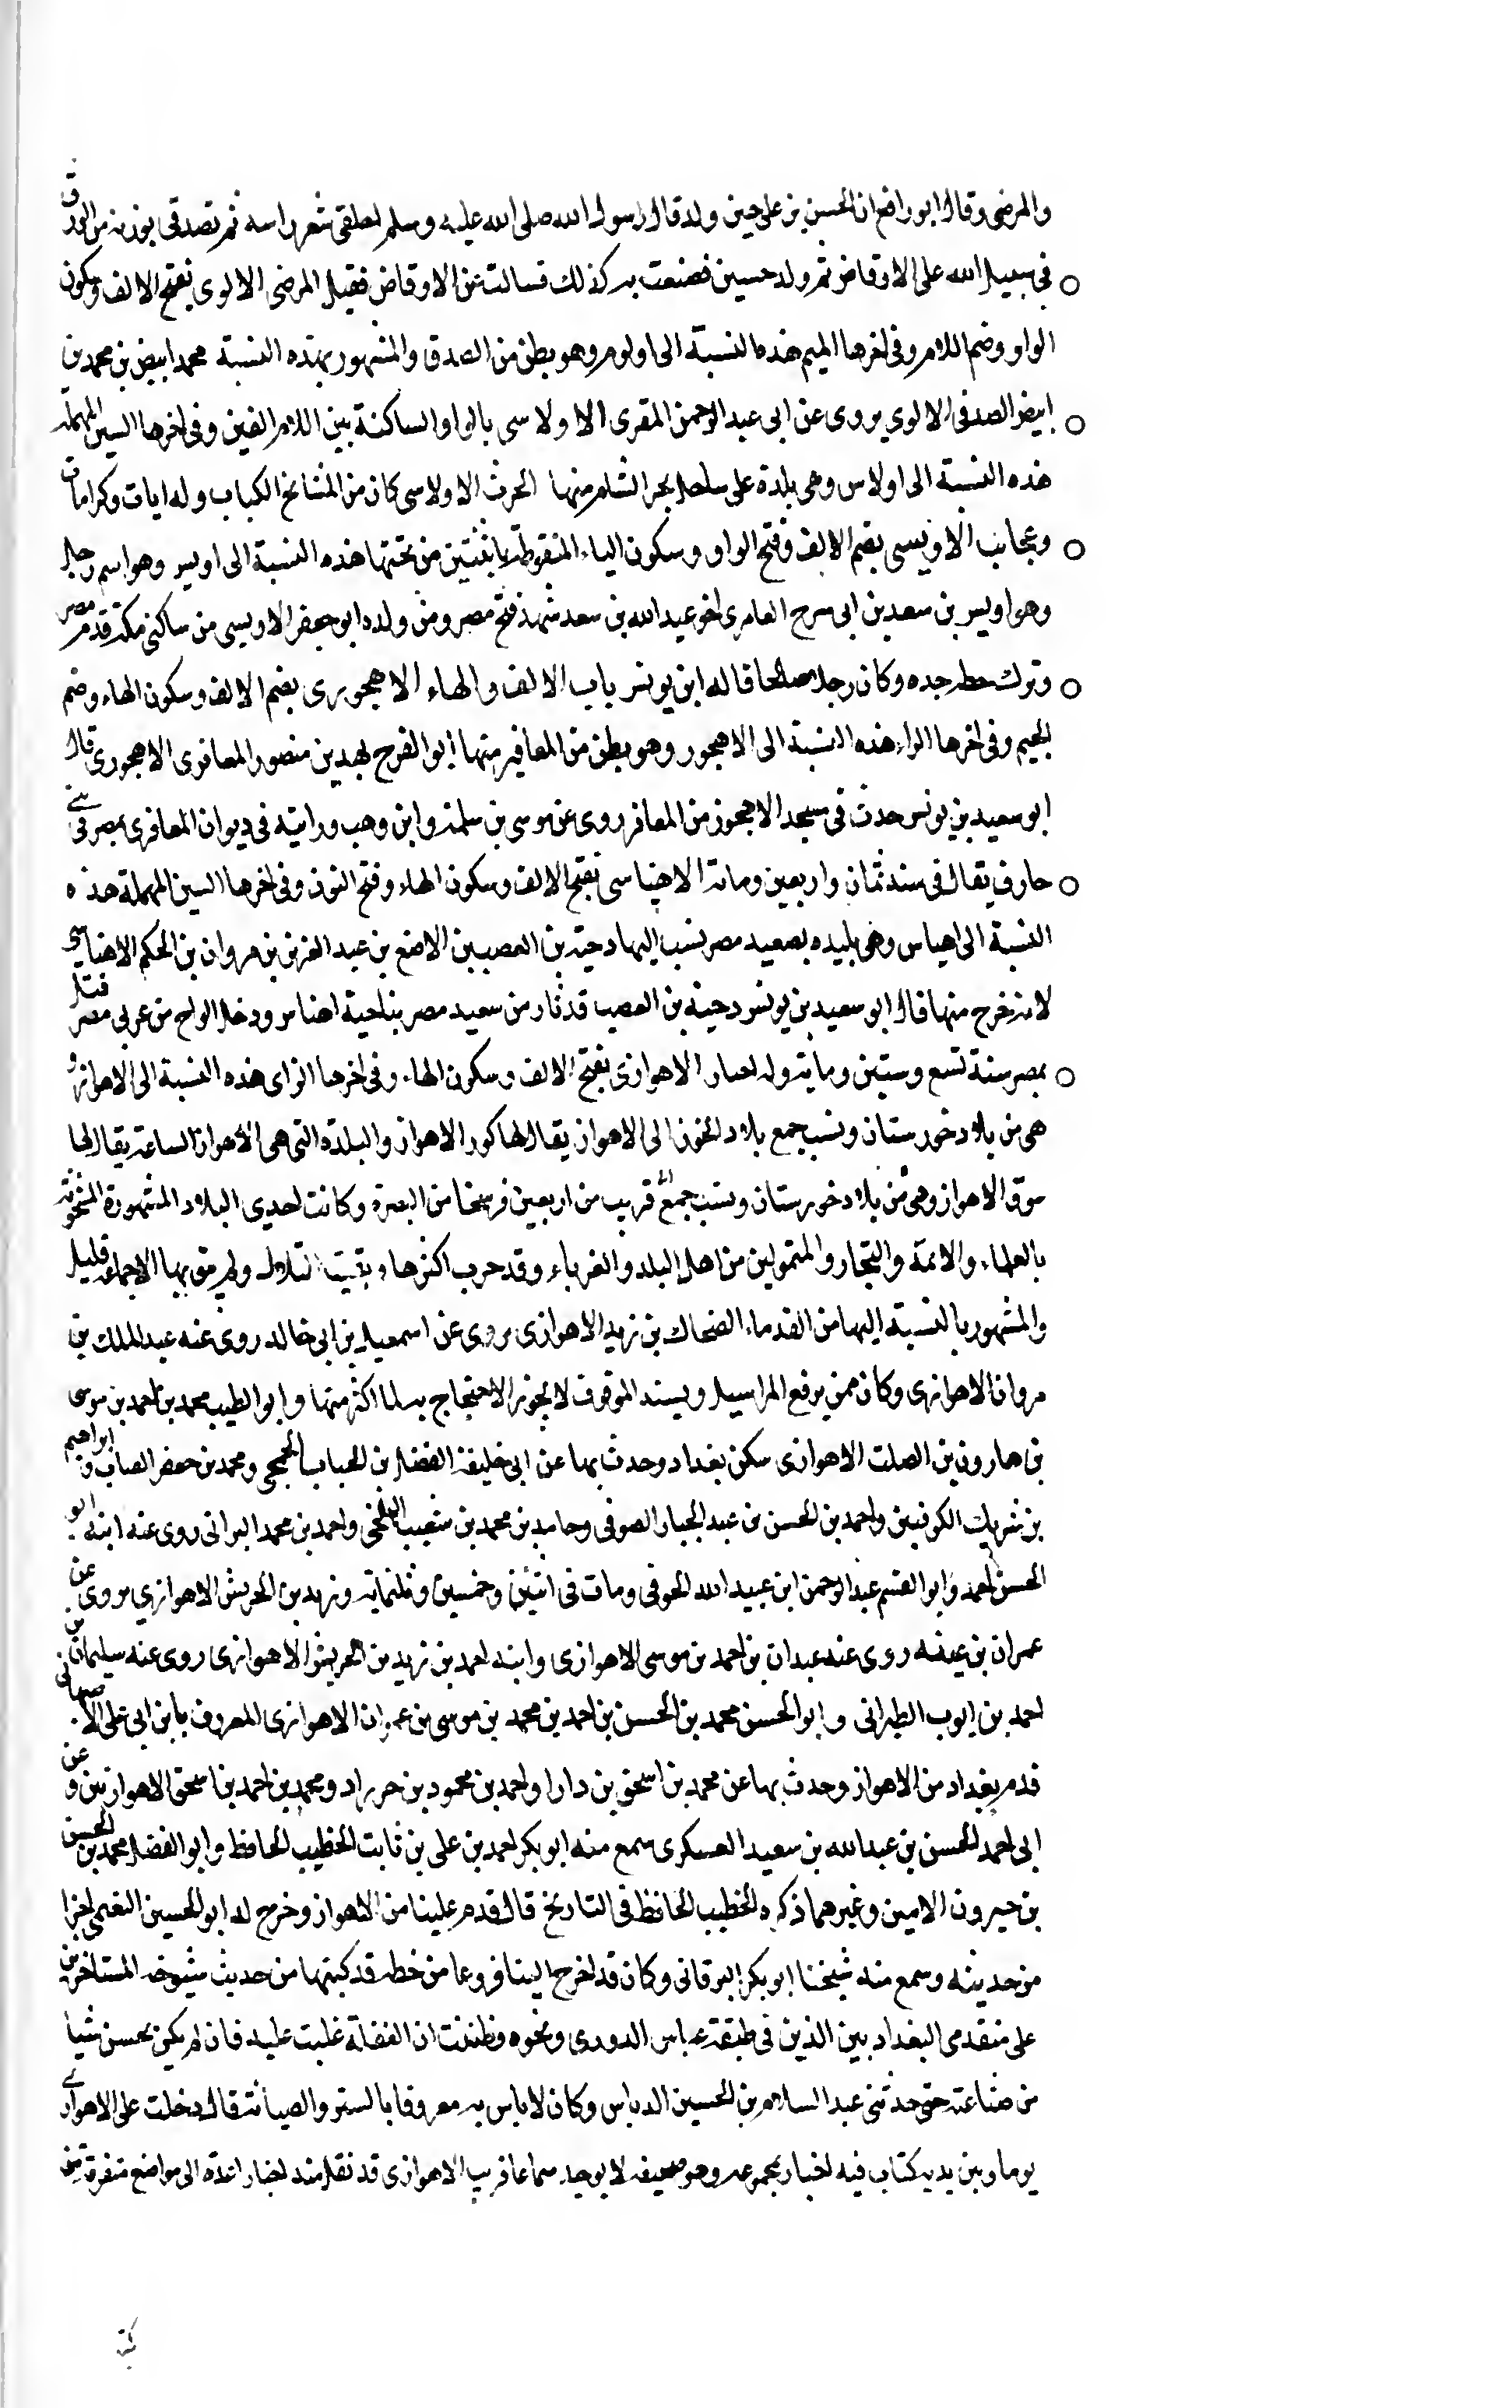 والمرضى وقال ابو رافع ان الحسن بن على حين ولد قال رسول الله صلى الله عليه وسلم احلقى شعر راسه ثم تصدقى بوزنه من الورق
فى سبيل الله على الاوفاض ثم ولد حسين فصنعت به كذلك فسالت عن الاوفاض فقيل المرضى الالوى بفتح الالف وسكون
الواو وضم اللام وفى اخرها الميم هذه النسبة الى اولوم وهو بطن من الصدف والمشهور بهذه النسبة محمد ابيض بن محمد بن
ابيض الصدفى الالوى يروى عن ابى عبد الرحمن المقرى الاولاسى بالواو الساكنة بين اللام الفين وفى اخرها السين المهملة
هذه النسبة الى اولاس وهى بلدة على ساحل بحر الشام منها الحرث الاولاسى كان من المشايخ الكبار وله ايات وكرامات
وعجائب الاويسى بضم الالف وفتح الواو وسكون الياء المنقوطة باثنتين من تحتها هذه النسبة الى اويس وهو اسم رجل
وهو اويس بن سعد بن ابى سرح العامرى اخو عبد الله بن سعد شهد فتح مصر ومن ولده ابو جعفر الاويسى من ساكنى مكة قدم مصر
وترك خطر جده وكان رجلا صالحا قاله ابن يونس باب الالف والهاء الاهجورى بضم الالف وسكون الهاء وضم
الجيم وفى اخرها الراء هذه النسبة الى الاهجور وهو بطن من المعافر منها ابو الفرج بن منصور المعافرى الاهجورى قال
ابو سعيد بن يونس حدث فى مسجد الاهجور من المعافر روى عن موسى بن سلمة وابن وهب ورايته فى ديوان المعافرى بمصر فى بنى
حارف يقال فى سنة ثمان واربعين ومائة الاهناسى بفتح الالف وسكون الهاء وفتح النون وفى اخرها السين المهملة هذه
النسبة الى اهناس وهى بليدة بصعيد مصر ينسب اليها دحية بن المصعب بن الاصبع بن عبد العزيز بن مروان بن الحكم الاهناسى
لانه خرج منها قال ابو سعيد بن يونس دحية بن المصعب قد ثار من سعيد مصر بناحية اهناس ودخل الواح من غربى مصر قتل
بمصر سنة تسع وستين وماية وله اخبار الاهوازى بفتح الالف وسكون الهاء وفى اخرها الزاى هذه النسبة الى الاهواز و
هى من بلاد خوزستان وينسب جميع بلاد الخوز الى الاهواز يقال لها كور الاهواز والبلدة التى هى الاهواز الساعة يقال لها
سوق الاهواز وهى من بلاد خوزستان وينسب جميع قريب من اربعين فرسخا من البصرة وكانت احدى البلاد المشهورة المشحونة
بالعلماء والائمة والتجار والمتمولين من اهل البلد والغرباء وقد خرب اكثرها وبقيت التلال ولم يبق بها الا جماعة قليل
والمشهور بالنسبة اليها من القدماء الضحاك بن زيد الاهوازى يروى عن اسمعيل بن ابى خالد روى عنه عبد الملك بن
مروان الاهوازى وكان ممن يرفع المراسيل ويسند الموقوف لا يجوز الاحتجاج به لما اكثر منها وابو الطيب محمد بن احمد بن موسى
بن هارون بن الصلت الاهوازى سكن بغداد وحدث بها عن ابى خليفة الفضل بن الحباب الجمحى ومحمد بن جعفر القتات وابراهيم
بن شريك الكوفيين واحمد بن الحسن بن عبد الجبار الصوفى وحامد بن محمد بن شعيب البلخى واحمد بن محمد البراثى روى عنه ابنه ابو
الحسن احمد وابو القسم عبد الرحمن ابن عبيد الله الحوفى ومات فى اثنتين وخمسين وثلثماية وزيد بن الحريش الاهوازى يروى عن
عمران بن عيينة روى عنه عبدان بن احمد بن موسى الاهوازى وابنه احمد بن زيد بن الحريش الاهوازى روى عنه سليمان بن
احمد بن ايوب الطبرانى وابو الحسن محمد بن الحسن بن احمد بن محمد بن موسى بن عمران الاهوازى المعروف بابن ابى على الاصبهانى
قدم بغداد من الاهواز وحدث بها عن محمد بن اسحق بن دارا واحمد بن محمود بن خرزاد ومحمد بن احمد بن اسحق الاهوازيين وعن
ابى احمد الحسن بن عبد الله بن سعيد العسكرى سمع منه ابو بكر احمد بن على بن ثابت الخطيب الحافظ وابو الفضل محمد بن الحسن
بن خيرون الامين وغيرهما ذكره الخطيب الحافظ فى التاريخ قال قدم علينا من الاهواز وخرج له ابو الحسين النعيمى اجزا
من حديثه وسمع منه شيخنا ابو بكر البرقانى وكان قد اخرج الينا فروعا من خطه قد كتبها من حديث شيوخه المتاخرين
على متقدمى البغداديين الذين فى طبقة عباس الدورى ونحوه وظننت ان الغفلة غلبت عليه فان لم يكن يحسن شيا
من صناعته حتى حدثنى عبد السلام بن الحسين الدباس وكان لا باس به معروفا بالستر والصيانة قال دخلت على الاهوازى
يوما وبين يديه كتاب فيه اخبار مجموعة وهو صحيفة لا يوجد سماعا فريت الاهوازى قد نقل منه اخبارا عدة الى مواضع متفرقة من